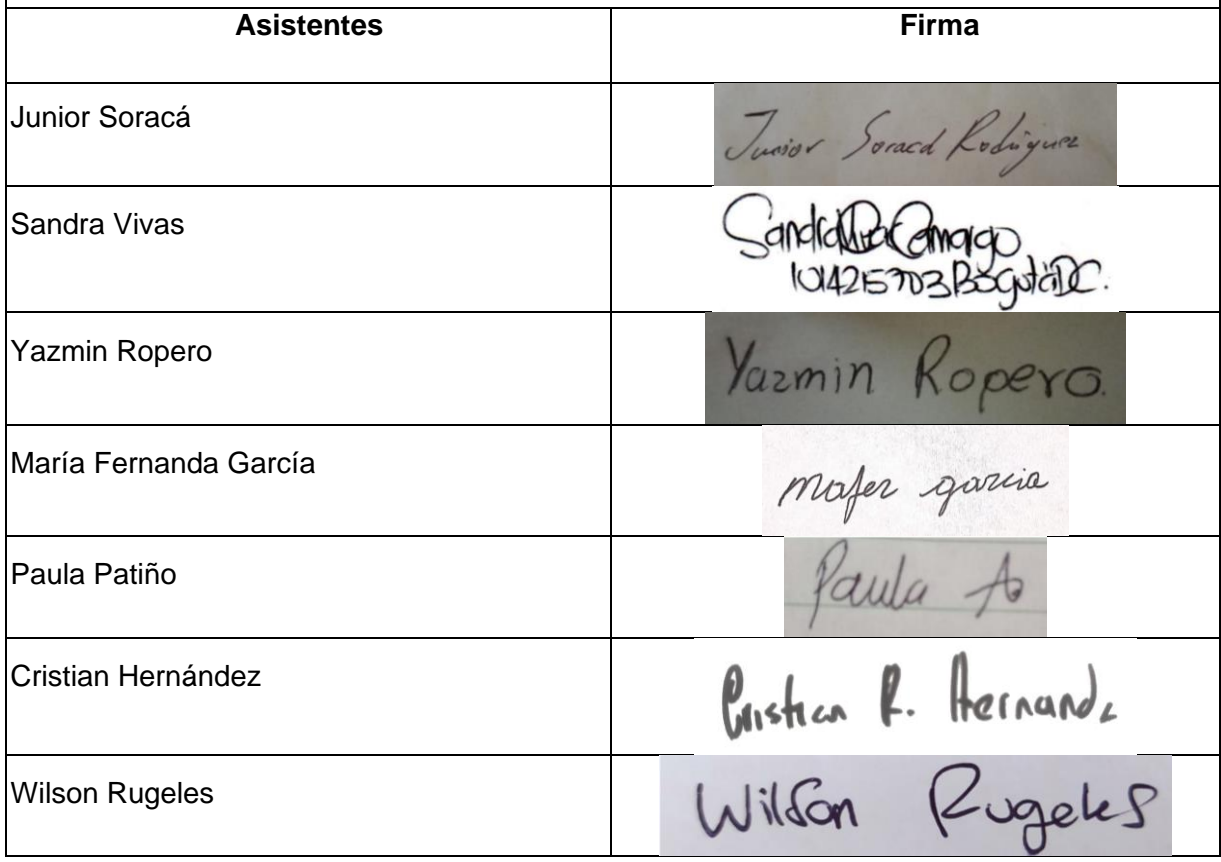 Asistentes Firma
Junior Soracá Junior Soracá Rodríguez
Sandra Vivas Sandra Camargo
1014215703 Bogotá DC.
Yazmin Ropero Yazmin Ropero.
María Fernanda García mafer garcia
Paula Patiño Paula
Cristian Hernández Cristian R. Hernandz
Wilson Rugeles Wilson Rugeles